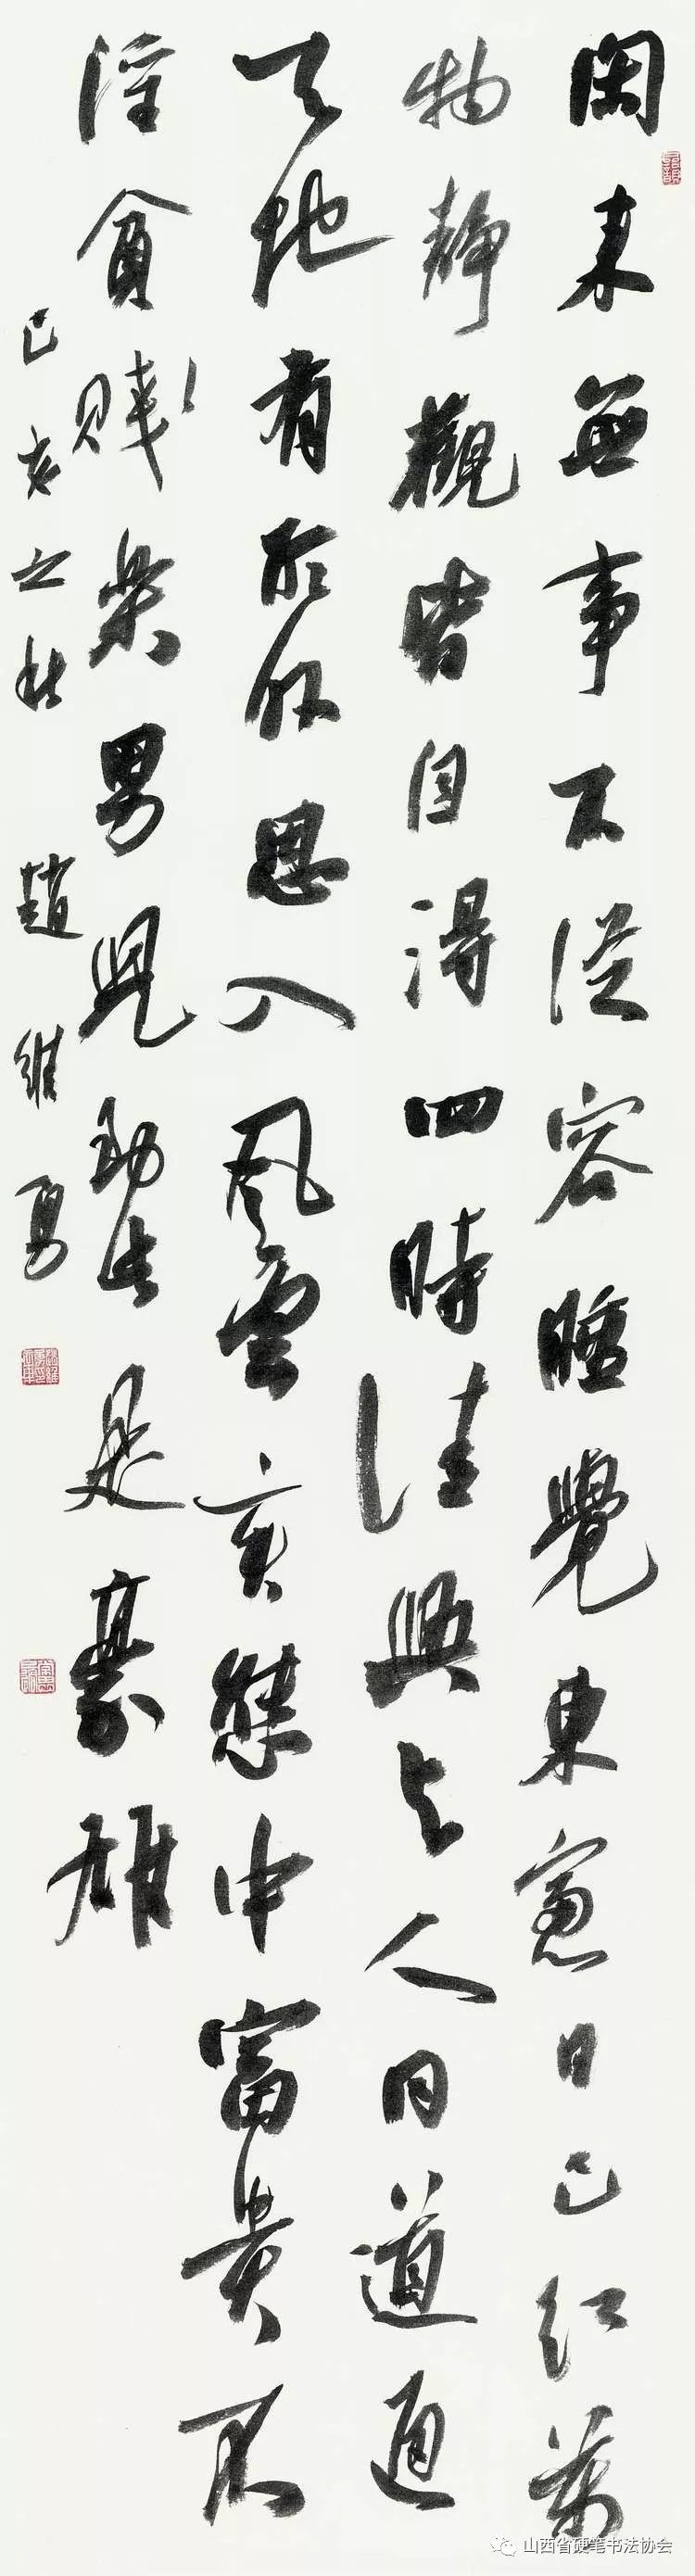 閑来無事不從容睡覺東窓日已红萬
物靜觀皆自得四時佳興与人同道通
天地有形外思入風雲変態中富貴不
淫貧賤樂男兒到此是豪雄
己亥之秋 趙維勇
山西省硬笔书法协会